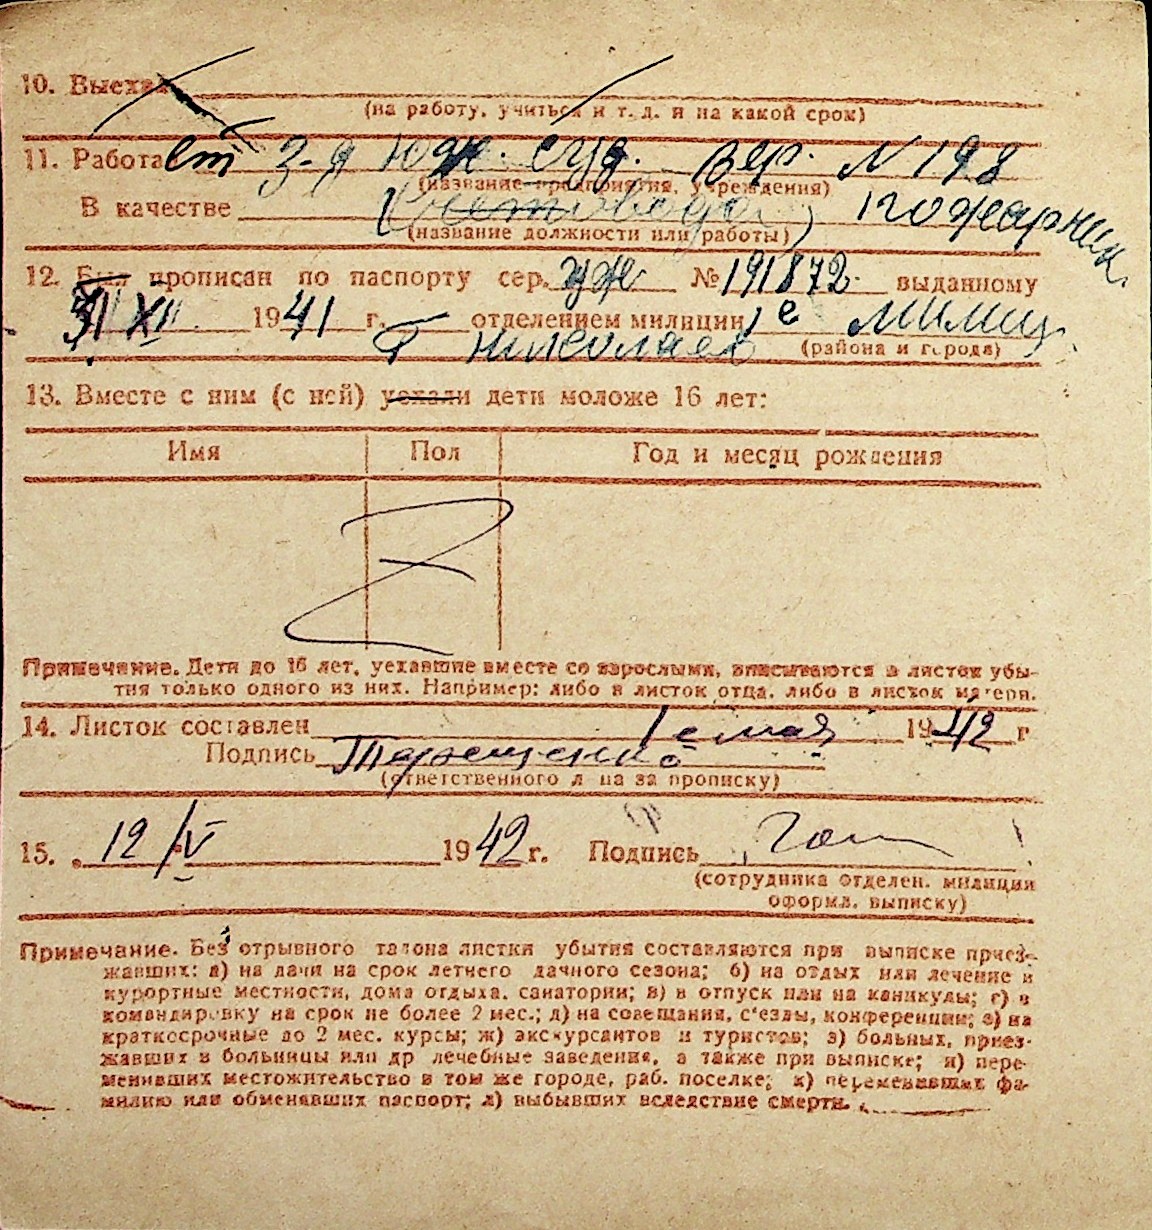 10. Выехал
(на работу, учиться и т. д. и на какой срок)
11. Работает З-д Юж. Суд. Вер. N 198
(название предприятия, учреждения)
В качестве (Счетовода) пожарник
(название должности или работы)
12. Был прописан по паспорту сер. УЖ № 191872 выданному
31 XII 1941 г. отделением милиции 1е милиц
Г Николаев (района и города)
13. Вместе с ним (с ней) уехали дети моложе 16 лет:
Имя Пол Год и месяц рождения
Z
Примечание. Дети до 16 лет, уехавшие вместе со взрослыми, вписываются в листок убы-
тия только одного из них. Например: либо в листок отца, либо в листок матери.
14. Листок составлен 1 е мая 1942 г
Подпись Терещенко
(ответственного л на за прописку)
15. 12/V 1942 г. Подпись
(сотрудника отделен. милиции
оформл. выписку)
Примечание. Без отрывного талона листки убытия составляются при выписке приез-
жавших: а) на дачи на срок летнего дачного сезона; б) на отдых или лечение в
курортные местности, дома отдыха, санатории; в) в отпуск или на каникулы; г) в
командировку на срок не более 2 мес.; д) на совещания, с'езды, конференции; е) на
краткосрочные до 2 мес. курсы; ж) экскурсантов и туристов; з) больных, приез-
жавших в больницы или др лечебные заведения, а также при выписке; и) пере-
менивших местожительство в том же городе, раб. поселке; к) переменивших фа-
милию или обменавших паспорт; л) выбывших вследствие смерти.